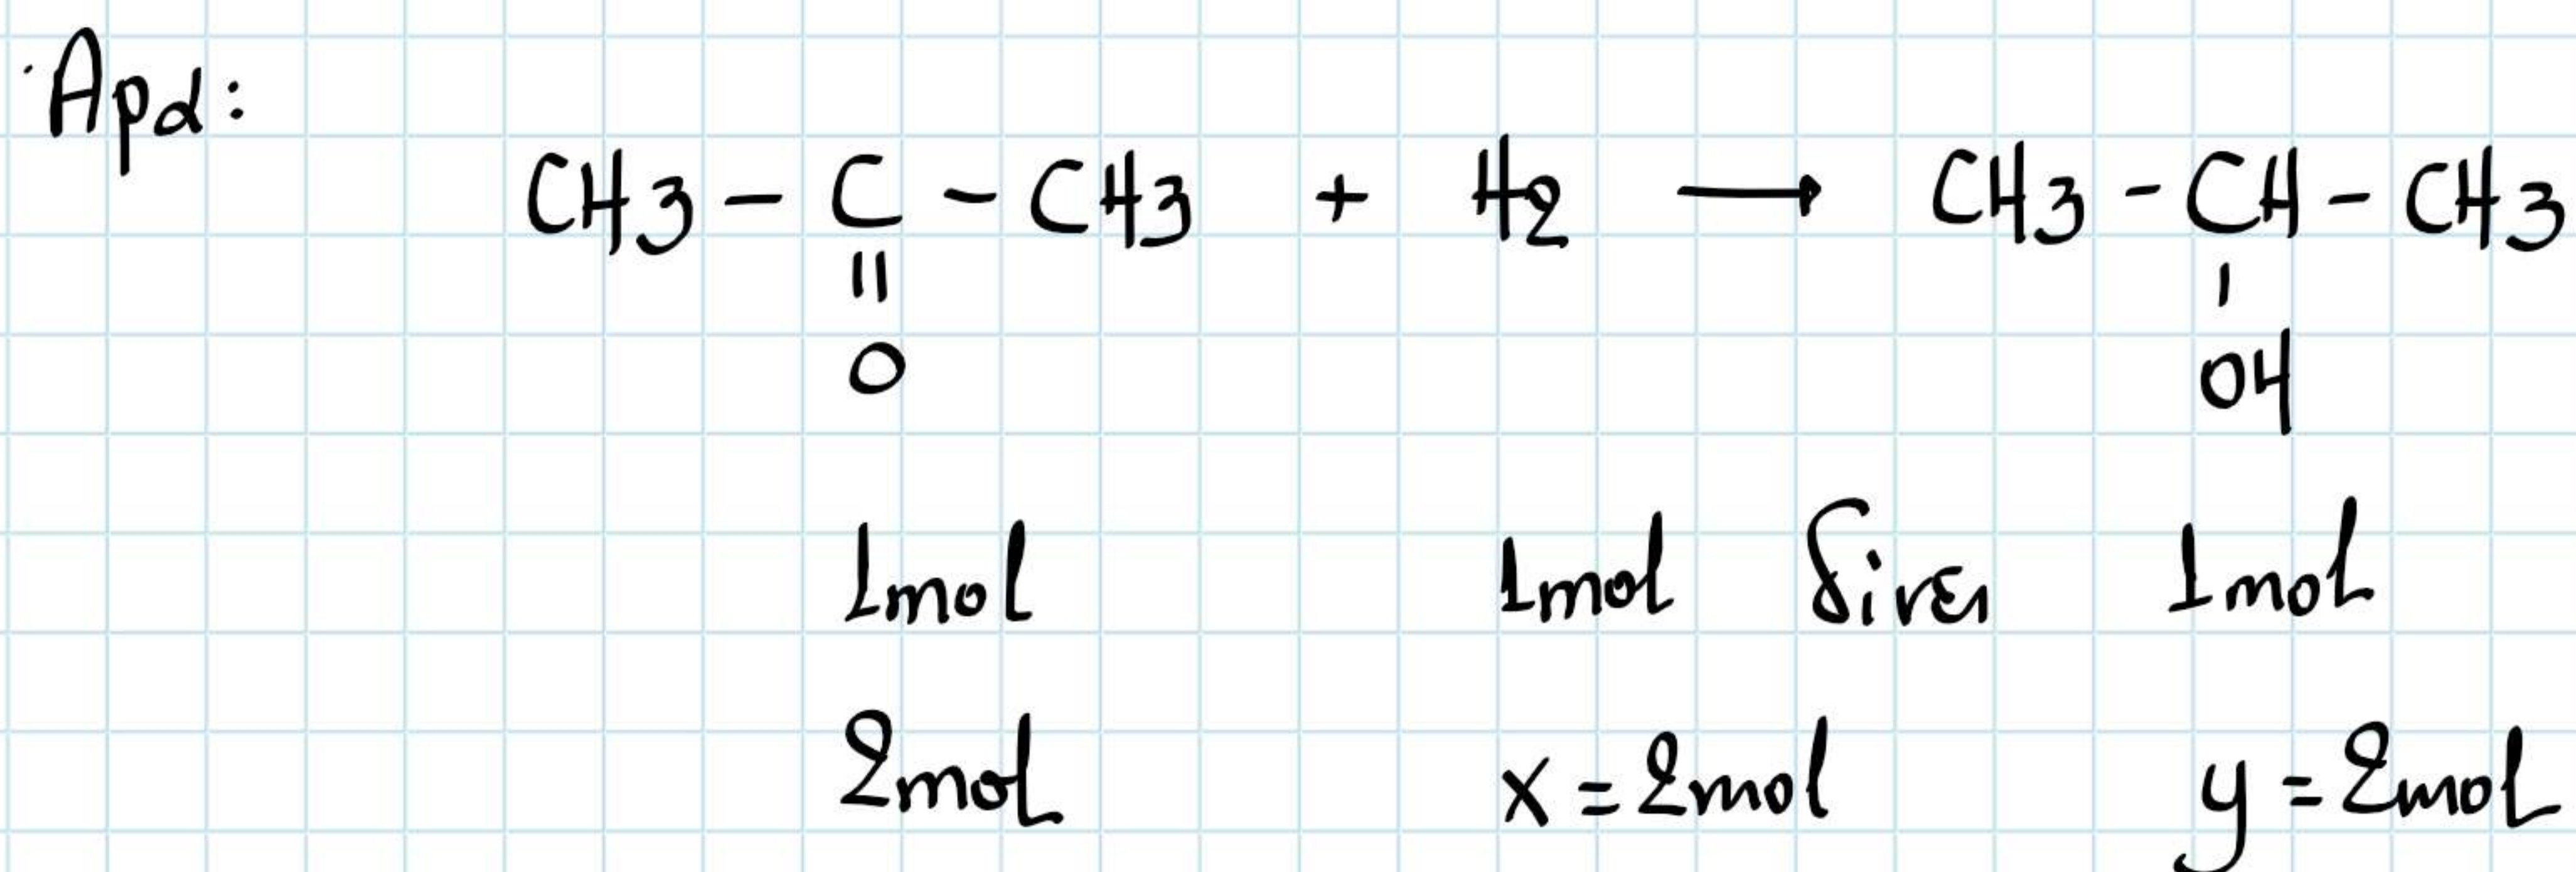 Άρα:
CH3 - C - CH3 + H2 → CH3 - CH - CH3
||
O
|
OH
1mol 1mol δίνει 1mol
2mol x = 2mol y = 2mol